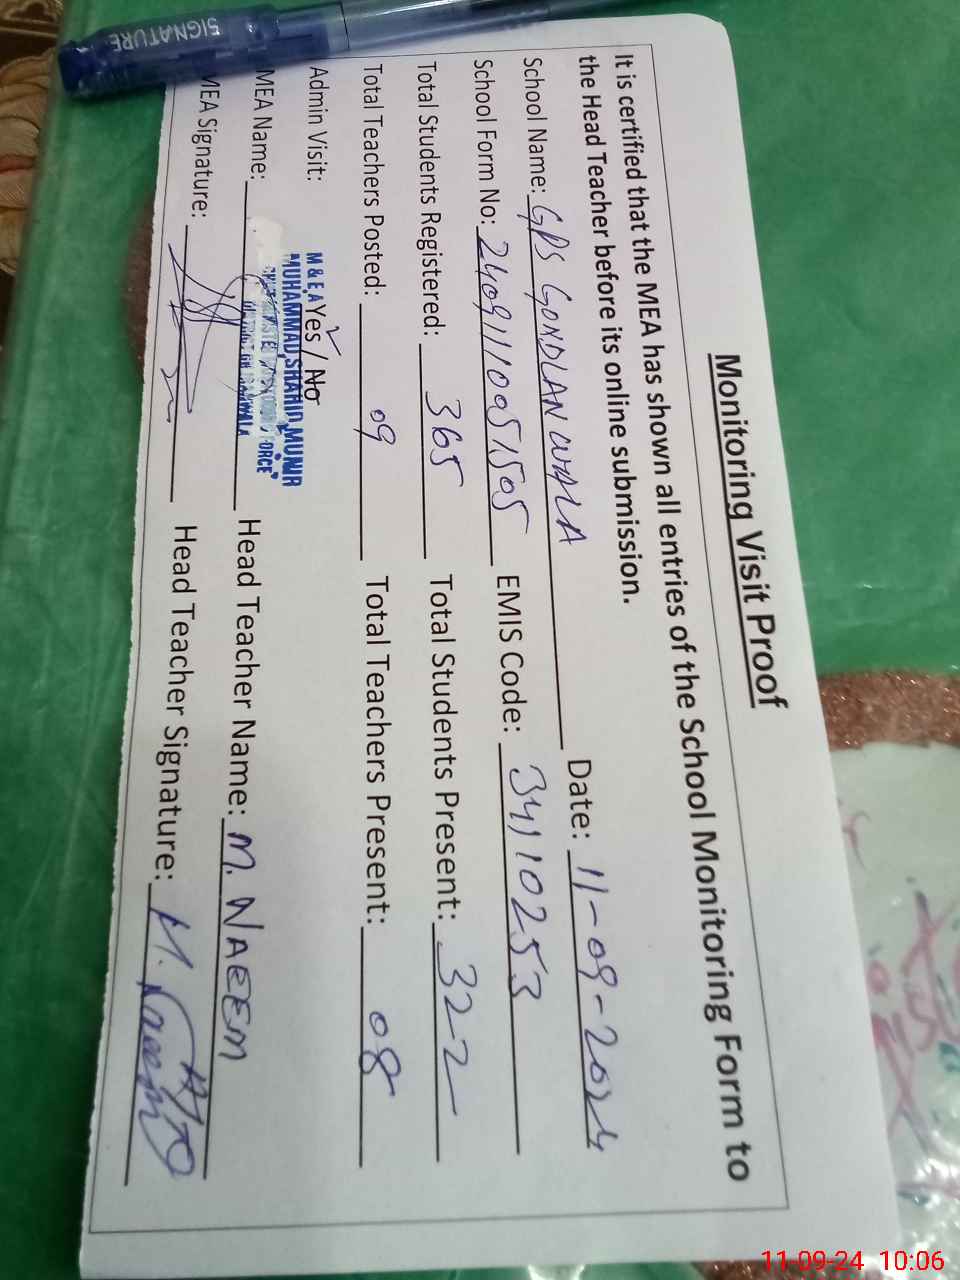 Monitoring Visit Proof
It is certified that the MEA has shown all entries of the School Monitoring Form to
the Head Teacher before its online submission.
School Name: GPS GONDLANWALA Date: 11-09-2024
School Form No: 24091110051505 EMIS Code: 34110253
Total Students Registered: 365 Total Students Present: 322
Total Teachers Posted: 09 Total Teachers Present: 08
Admin Visit: Yes / No
M & E A
MUHAMMAD SHAHID MUNIR
FORCE
MEA Name: Head Teacher Name: M. NAEEM
MEA Signature: Head Teacher Signature: M. Naeem
SIGNATURE
11-09-24 10:06